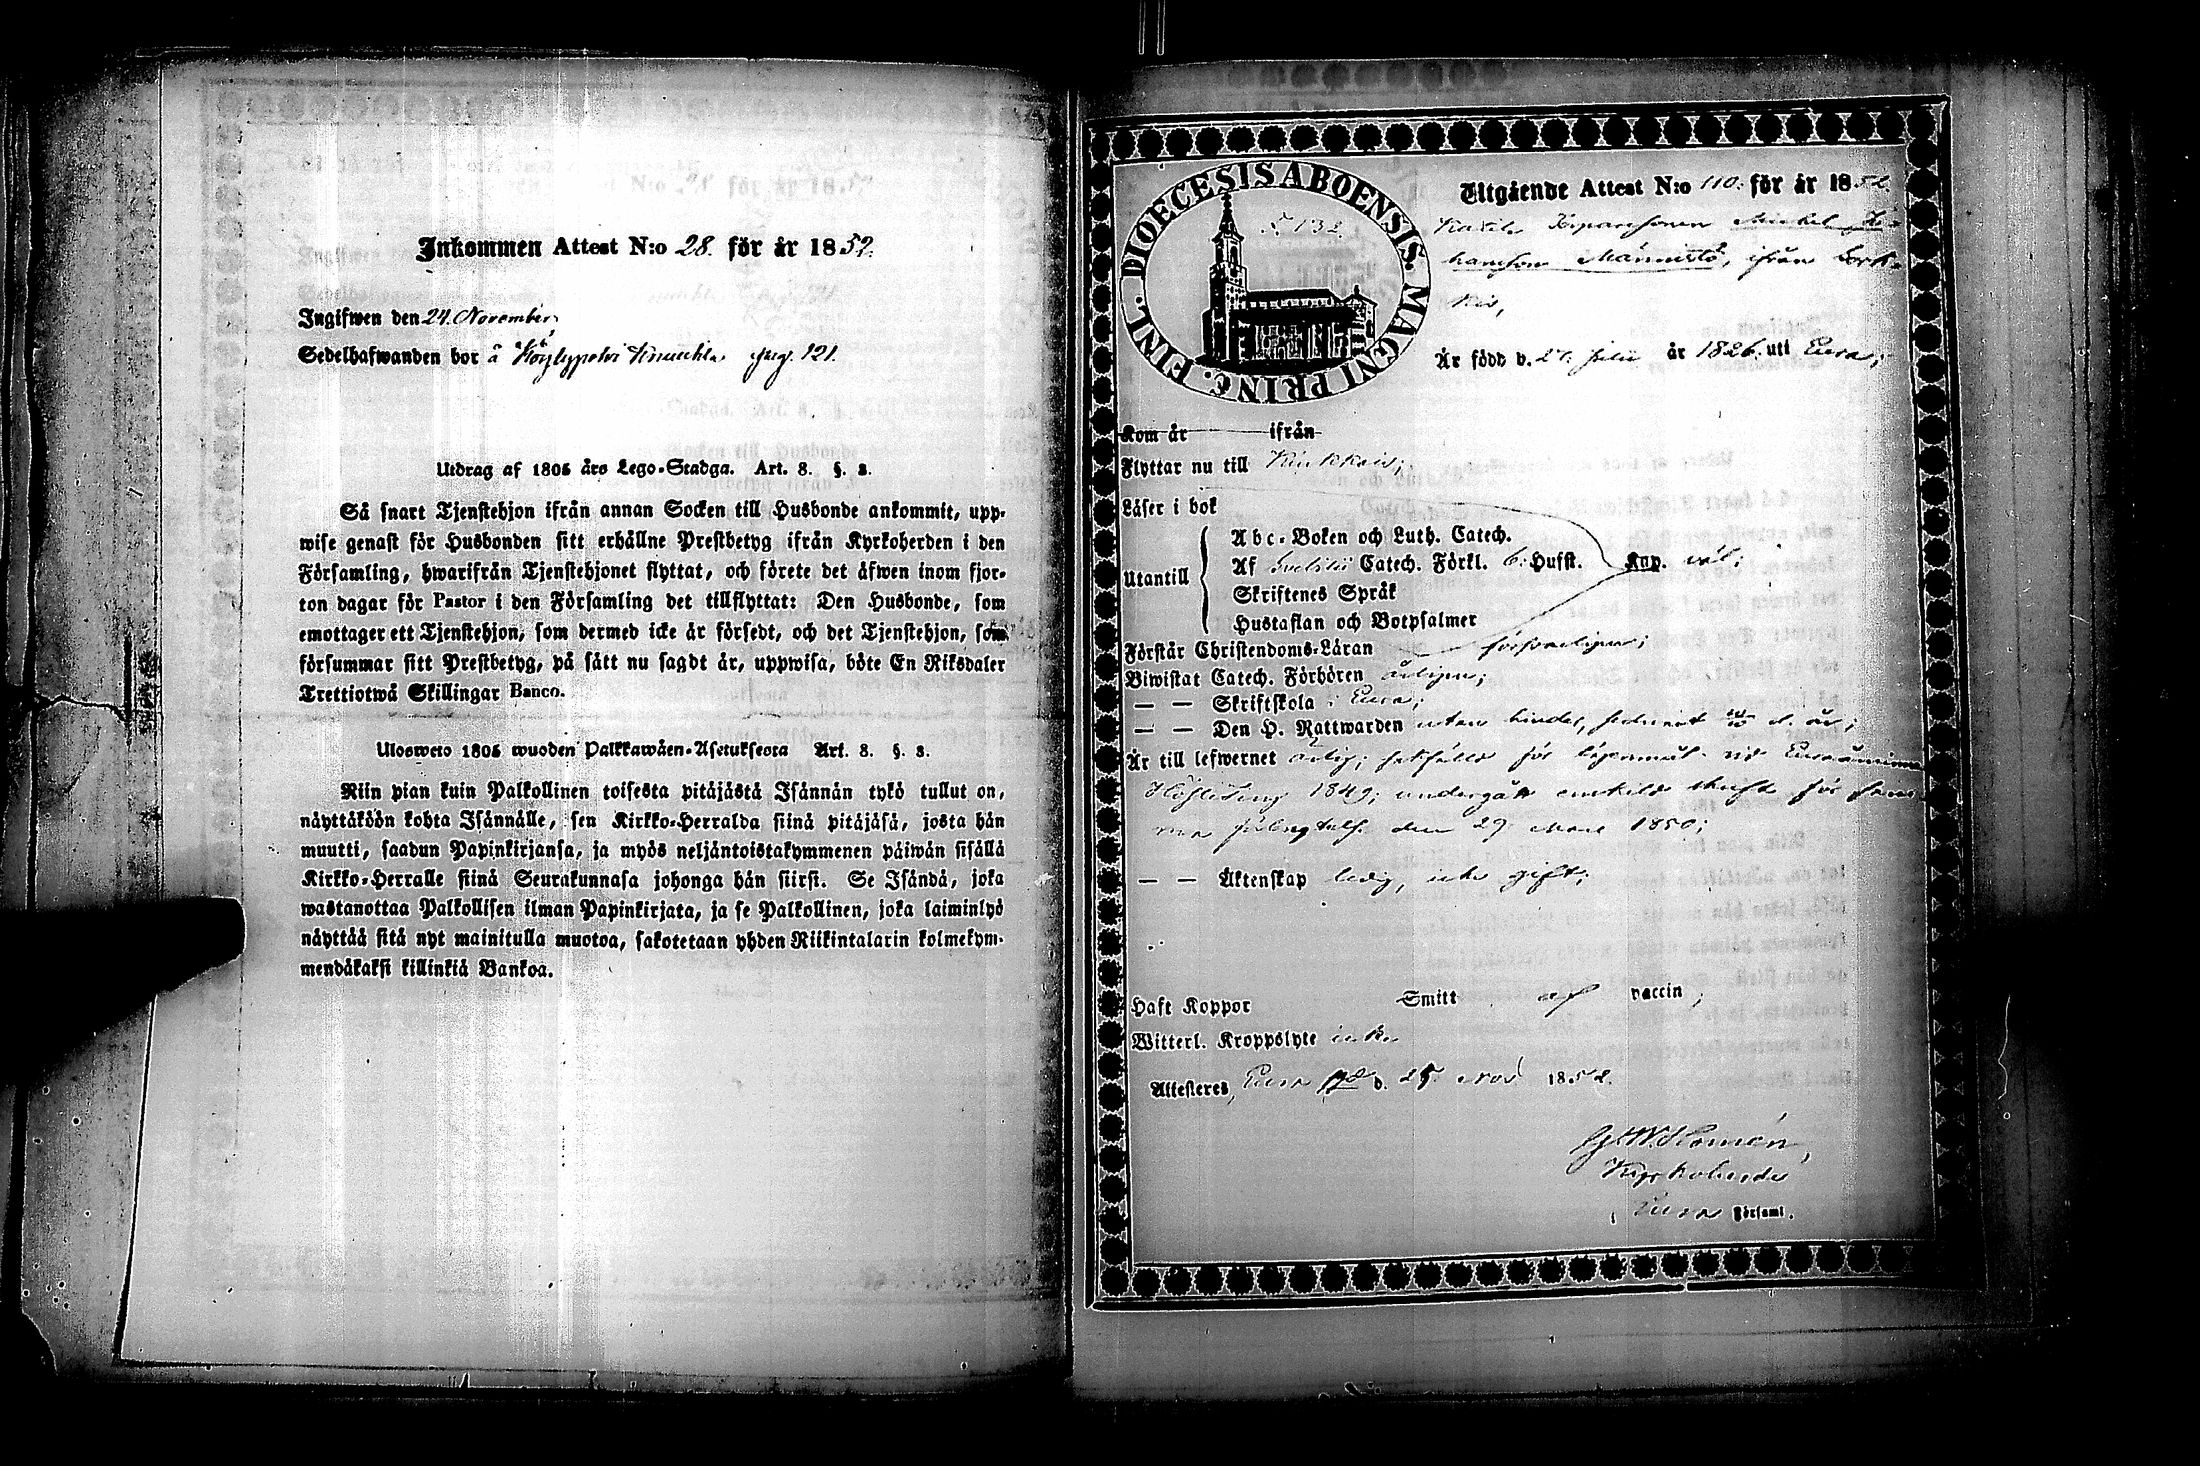 Inkommen Attest N:o 28. för år 1852.
Ingifwen den 24. November
Sedelhafwanden bor å pag. 121.
Utdrag af 1805 års Lego-Stadga. Art. 8. §. 8.
Så snart Tjenstehjon ifrån annan Socken till Husbonde ankommit, upp-
wise genast för Husbonden sitt erhållne Prestbetyg ifrån Kyrkoherden i den
Församling, hwarifrån Tjenstehjonet flyttat, och förete det äfwen inom fjor-
ton dagar för Pastor i den Församling det tillflyttat: Den Husbonde, som
emottager ett Tjenstehjon, som dermed icke är försedt, och det Tjenstehjon, som
försummar sitt Prestbetyg, på sätt nu sagdt är, uppwisa, böte En Riksdaler
Trettiotwå Skillingar Banco.
Ulosweto 1805 wuoden Palkkawäen-Asetuksesta Art. 8. §. 8.
Niin pian kuin Palkollinen toisesta pitäjästä Isännän tykö tullut on,
näyttäköön kohta Isännälle, sen Kirkko-Herralda siinä pitäjäsä, josta hän
muutti, saadun Papinkirjansa, ja myös neljäntoistakymmenen päiwän sisällä
Kirkko-Herralle siinä Seurakunnasa johonga hän siirsi. Se Isändä, joka
wastanottaa Palkollisen ilman Papinkirjata, ja se Palkollinen, joka laiminlyö
näyttää sitä nyt mainitulla muotoa, sakotetaan yhden Riikintalarin kolmekym-
mendäkaksi killinkiä Bankoa.
DIOECESIS ABOENSIS. MAGNI PRINC. FINL.
N 132.
Utgående Attest N:o 110. för år 1852
Michel Jo-
hansson Männistö, ifrån
Är född d. 27. Julii år 1826. uti Eura;
Kom år ifrån
Flyttar nu till Kiukkais;
Läser i bok
Utantill
Abc-Boken och Luth. Catech.
Af Svebilii Catech. Förkl. 6. Hufst. Kap. väl;
Skriftenes Språk
Hustaflan och Botpsalmer
Förstår Christendoms-Läran försvarligen;
Biwistat Catech. Förhören årligen;
— — Skriftskola i Eura;
— — Den H. Nattwarden utan hinder, d. år;
Är till lefwernet ärlig; sakfälld för lägersmål vid Euraåminne
Hösteting 1849; undergått enskild skrift för
den 29 1850;
— — Äktenskap ledig, icke gift;
Haft Koppor Smitt af vaccin;
Witterl. Kroppslyte icke.
Attesteres, Eura d. 25. Nov 1852.
Kyrkoherde
i Eura Församl.